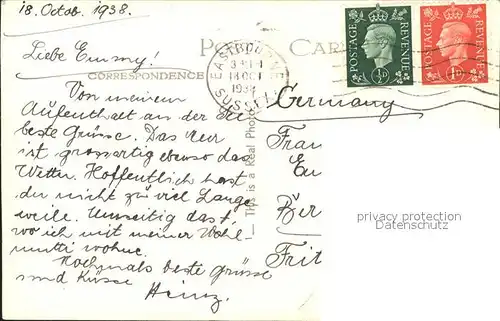 18. Octob. 1938.
Liebe Emmy!
CORRESPONDENCE
Von meinem
Aufenthalt an der See
beste Grüsse. Das Meer
ist grossartig ebenso das
Wetter. Hoffentlich hast
du nicht zu viel Lange-
weile. Umseitig das
wo ich mit meiner Wohl
mutti wohne.
Nochmals beste Grüsse
und Küsse
Heinz.
POST CARD
EASTBOURNE
SUSSEX
POSTAGE REVENUE
½D
POSTAGE REVENUE
1D
This is a Real Photo
Germany
Frau
Be
Frit
privacy protection
Datenschutz